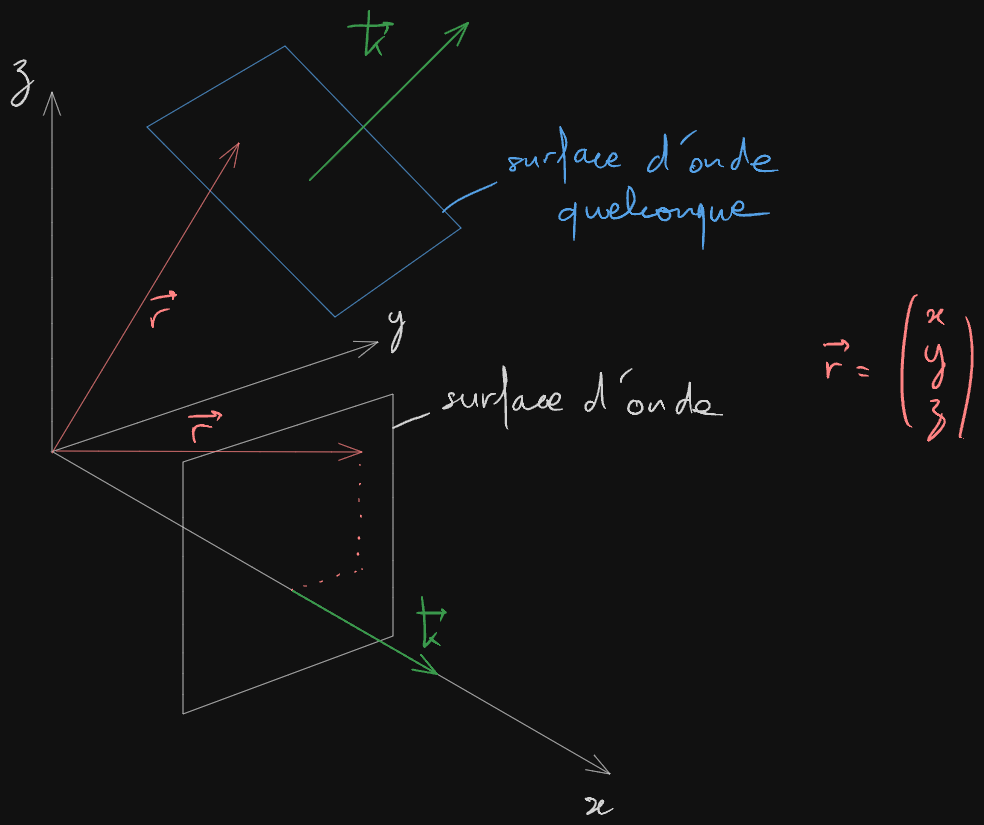 k⃗
z
surface d'onde
quelconque
r⃗
y
r⃗ = ( x
y
z )
surface d'onde
r⃗
k⃗
x